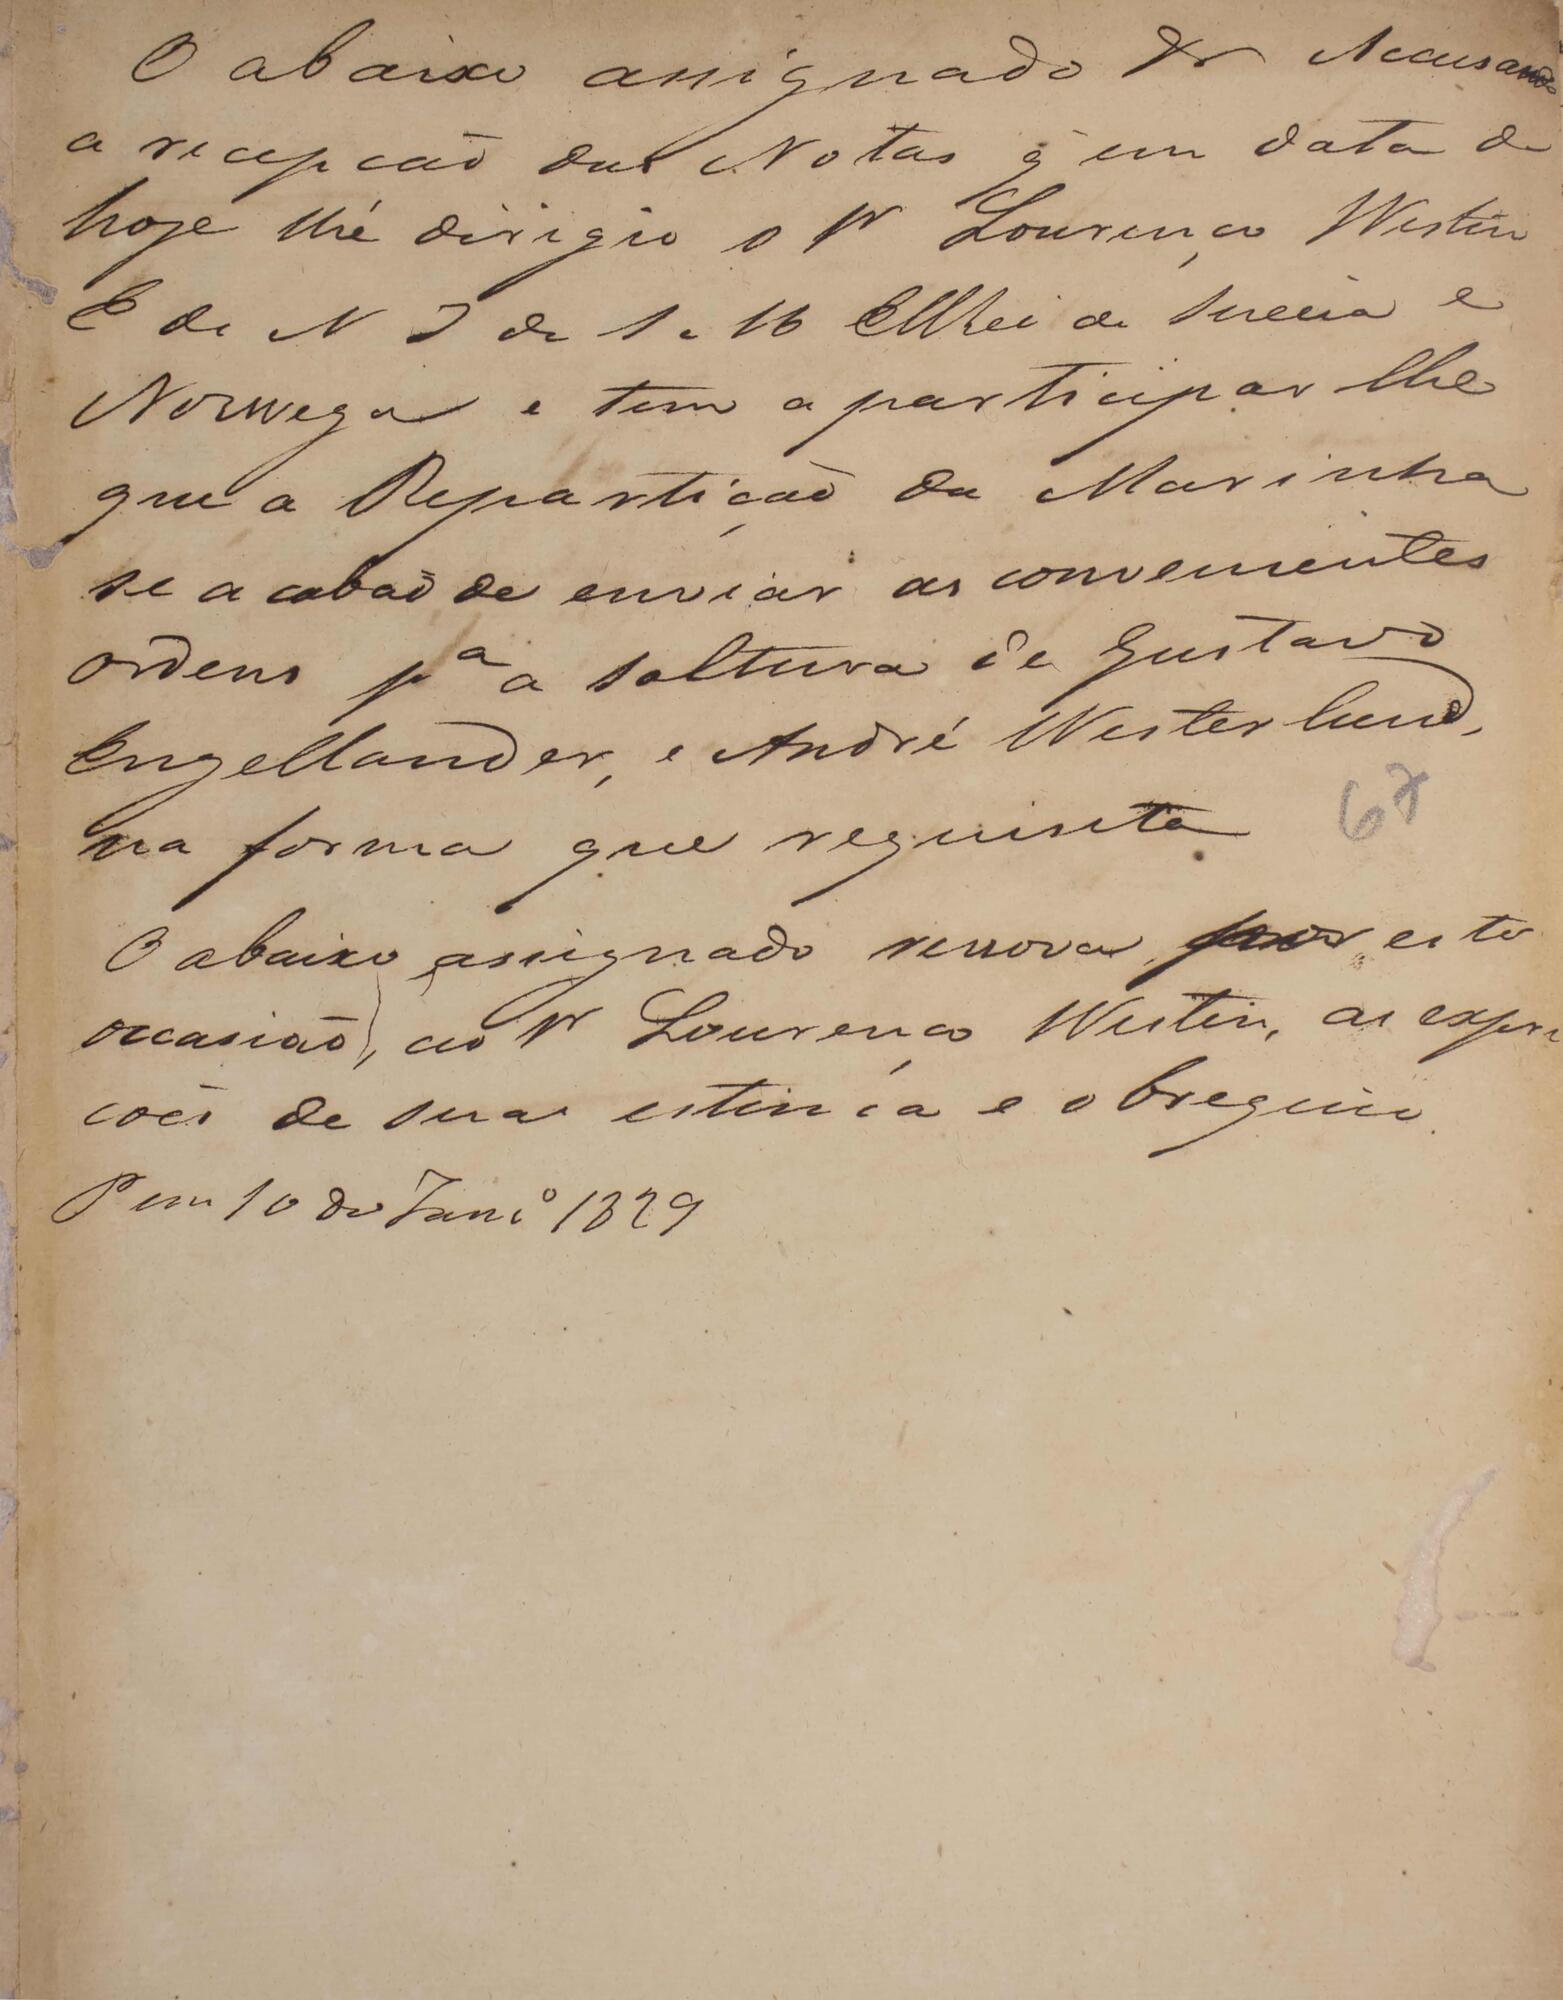 O abaixo assignado &r Accusando
a recepcaõ das Notas q̃ em data de
hoje lhé dirigio o Sr Lourenço Westin
E de N I de S. M ElRei da Suecia e
Norwega e tem a participar lhe
que a Repartiçaõ da Marinha
se acabaõ de enviar as convenientes
ordens pa a soltura de Gustavo
Engellander, e André Westerlund,
na forma que requisita
67
O abaixo assignado renova por esta
occasiaõ, ao Sr Lourenço Westin, as expre
coẽs de sua estima e obsequio.
P em 10 de Janro 1829